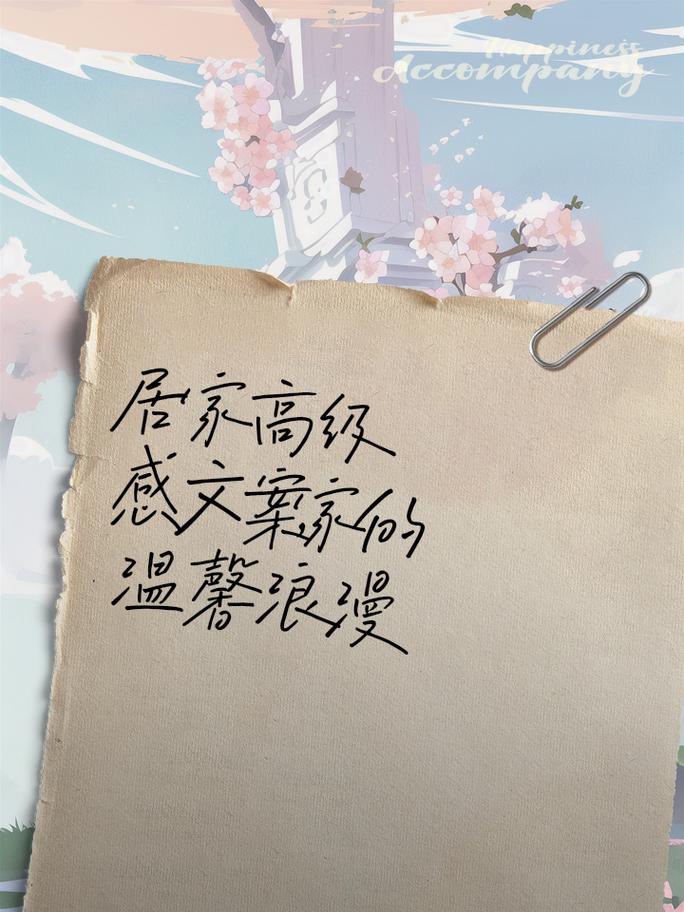 Happiness
Accompany
居家高级
感文案家的
温馨浪漫